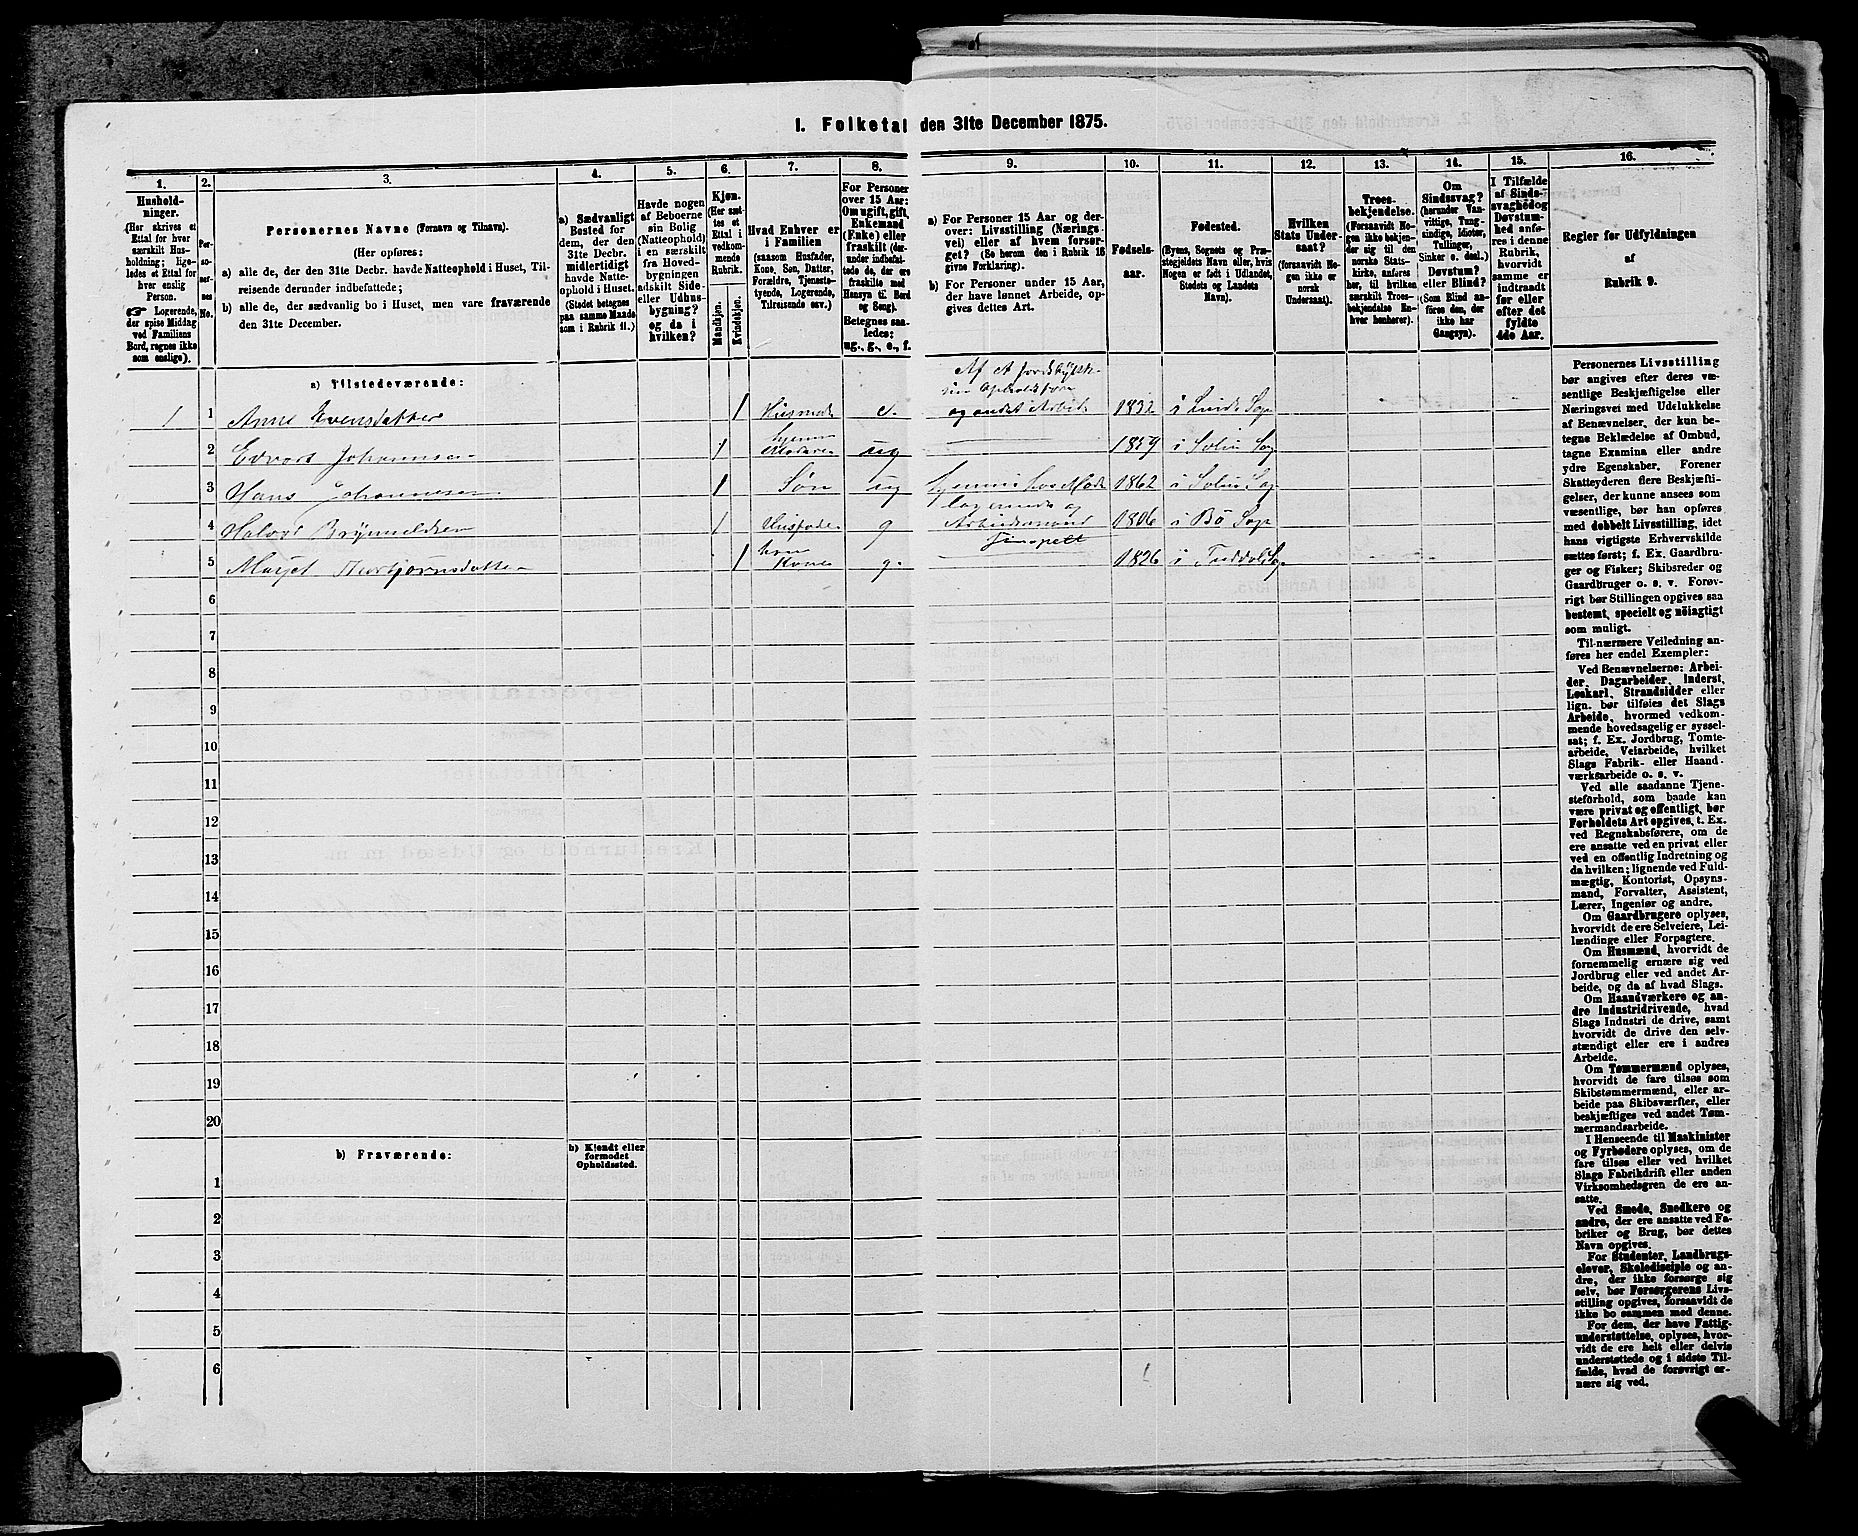 1. Folketal den 31te December 1875.
1.
Husholdninger.
(Her skrives et
Ettal for hver
særskilt Husholdning; ligeledes et Ettal for
hver enslig
Person.
Logerende,
der spise Middag
ved Familiens
Bord, regnes ikke
som enslige).
2.
Personernes
No.
3.
Personernes Navne (Fornavn og Tilnavn).
(Her opføres:
a) alle de, der den 31te Decbr. havde Natteophold i Huset, Tilreisende derunder indbefattede;
b) alle de, der sædvanlig bo i Huset, men vare fraværende
den 31te December.
4.
a) Sædvanligt
Bosted for
dem, der den
31te Decbr.
midlertidigt
havde Natteophold i Huset.
(Stedet betegnes
paa samme Maade
som i Rubrik 11.)
5.
Havde nogen
af Beboerne
sin Bolig
(Natteophold)
i en særskilt
fra Hovedbygningen
adskilt Side-
eller Udhusbygning?
og da i
hvilken?
6.
Kjøn.
(Her sættes et
Ettal i
vedkommende
Rubrik.
Mandkjøn.
Kvindekjøn.
7.
Hvad Enhver er
i Familien
(saasom Husfader,
Kone, Søn, Datter,
Forældre, Tjenestetyende, Logerende,
Tilreisende osv.)
8.
For Personer
over 15 Aar:
Om ugift, gift,
Enkemand
(Enke) eller
fraskilt (derunder indbefattede de, der ere
fraskilte med
Hensyn til Bord
og Seng).
Betegnes saaledes:
ug., g., e., f.
9.
a) For Personer 15 Aar og derover: Livsstilling (Næringsvei) eller af hvem forsørget? (Se herom den i Rubrik 16
givne Forklaring).
b) For Personer under 15 Aar,
der have lønnet Arbeide, opgives dettes Art.
10.
Fødselsaar.
11.
Fødested.
(Byens, Sognets og Præstegjeldets Navn eller, hvis
Nogen er født i Udlandet,
Stedets og Landets
Navn).
12.
Hvilken
Stats Undersaat?
(forsaavidt Nogen ikke er
norsk
Undersaat).
13.
Troesbekjendelse.
(Forsaavidt Nogen ikke bekjender sig til den
norske Statskirke, anføres
her, til hvilken
særskilt Troesbekjendelse Enhver henhører).
14.
Om
Sindssvag?
(herunder Vanvittige, Tungsindige, Idioter,
Tullinger,
Sinker o. desl.)
Døvstum?
eller Blind?
(Som Blind anføres den, der
ikke har
Gangsyn).
15.
I Tilfælde
af Sindssvaghed og
Døvstumhed anføres i denne
Rubrik,
hvorvidt
samme er
indtraadt
før eller
efter det
fyldte
4de Aar.
16.
Regler for Udfyldningen
af
Rubrik 9.
a) Tilstedeværende:
1 1 Anne Evensdatter 1 Husmoder e. og andet Arbeide 1832 i Lunde Sogn
2 Edvart Johannsen 1 ug 1859 i Solum Sogn
3 Hans Johannesen 1 Søn ug hjemme hos Moder 1862 i Solum Sogn
4 Halvor Brynnildsen 1 Husfader g logerende og
Arbeidsmand 1806 i Bø Sogn
5 Margit 1 hans
Kone g. 1826 i Tuddal Sogn
6
7
8
9
10
11
12
13
14
15
16
17
18
19
20
b) Fraværende:
b) Kjendt eller
formodet
Opholdssted.
1
2
3
4
5
6
Personernes Livsstilling
bør angives efter deres væsentlige Beskjæftigelse eller
Næringsvei med Udelukkelse
af Benævnelser, der kun betegne Beklædelse af Ombud,
tagne Examina eller andre
ydre Egenskaber. Forener
Skatteyderen flere Beskjæftigelser, der kunne ansees som
væsentlige, bør han opføres
med dobbelt Livsstilling, idet
hans vigtigste Erhvervskilde
sættes først; f. Ex. Gaardbruger og Fisker; Skibsreder og
Gaardbruger o. s. v. Forøvrigt bør Stillingen opgives saa
bestemt, specielt og nøiagtigt
som muligt.
Til nærmere Veiledning anføres her endel Exempler:
Ved Benævnelserne: Arbeider, Dagarbeider, Inderst,
Løskarl, Strandsidder eller
lign. bør tilføies det Slags
Arbeide, hvormed vedkommende hovedsagelig er sysselsat; f. Ex. Jordbrug, Tomtearbeide, Veiarbeide, hvilket
Slags Fabrik- eller Haandværksarbeide o. s. v.
Ved alle saadanne Tjenesteforhold, som baade kan
være privat og offentligt, bør
Forholdets Art opgives, t. Ex.
ved Regnskabsførere, om de
ere ansatte ved en privat eller
ved en offentlig Indretning og
da hvilken; lignende ved Fuldmægtig, Kontorist, Opsynsmand, Forvalter, Assistent,
Lærer, Ingeniør og andre.
Om Gaardbrugere oplyses,
hvorvidt de ere Selveiere, Leilændinge eller Forpagtere.
Om Husmænd, hvorvidt de
fornemmelig ernære sig ved
Jordbrug eller ved andet Arbeide, og da af hvad Slags.
Om Haandværkere og andre Industridrivende, hvad
Slags Industri de drive, samt
hvorvidt de drive den selvstændigt eller ere i andres
Arbeide.
Om Tømmermænd oplyses,
hvorvidt de fare tilsøs som
Skibstømmermænd, eller arbeide paa Skibsværfter, eller
beskjæftiges ved andet Tømmermandsarbeide.
I Henseende til Maskinister
og Fyrbødere oplyses, om de
fare tilsøs eller ved hvilket
Slags Fabrikdrift eller anden
Virksomhedsgren de ere ansatte.
Ved Smede, Snedkere og
andre, der ere ansatte ved Fabriker og Brug, bør dettes
Navn opgives.
For Studenter, Landbrugselever, Skoledisciple og andre, der ikke forsørge sig
selv, bør Forsørgerens Livsstilling opgives, forsaavidt de
ikke bo sammen med denne.
For dem, der have Fattigunderstøttelse, oplyses, hvorvidt de ere helt eller delvis
understøttede og i sidste Tilfælde, hvad de forøvrigt ernære sig ved.